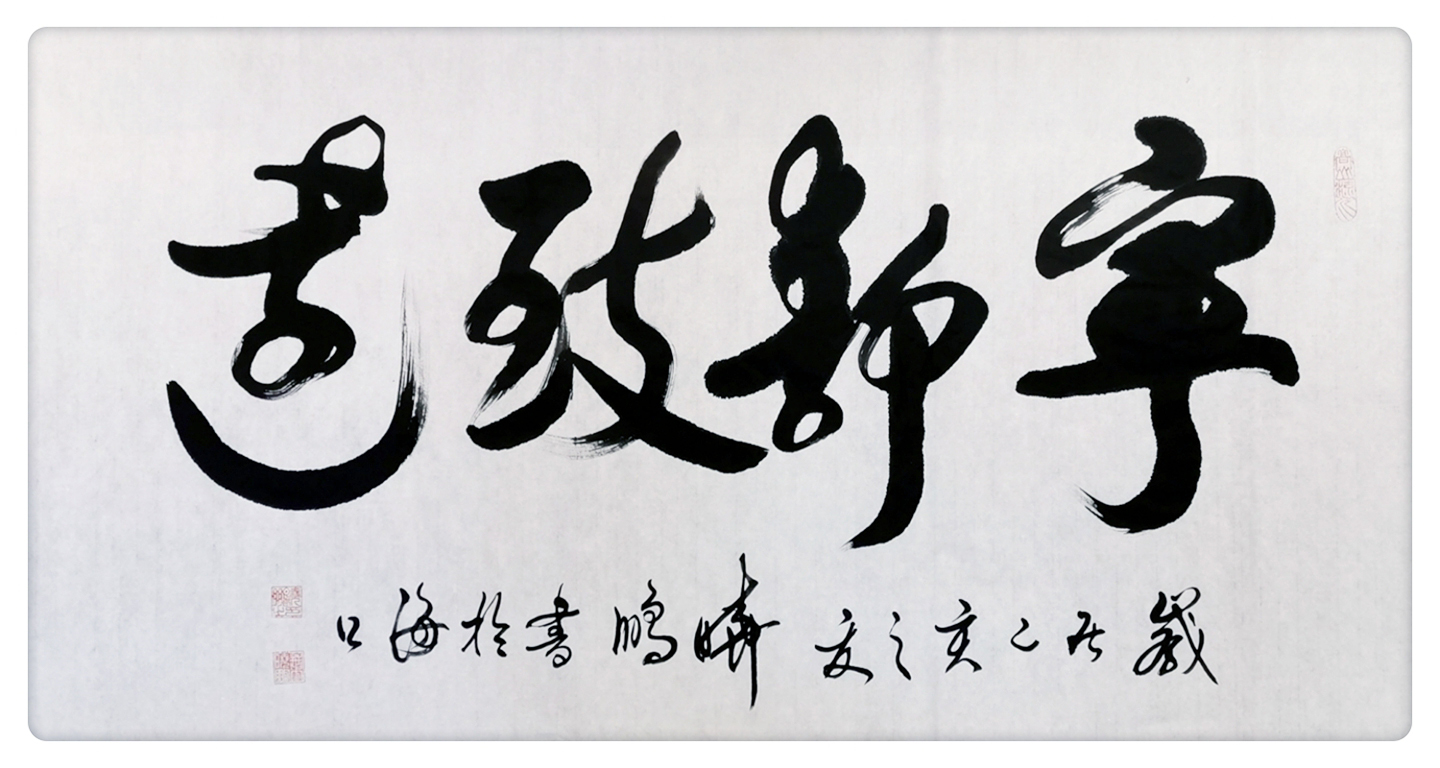 寧靜致遠
歲在己亥之夏 曄鵬書於海口